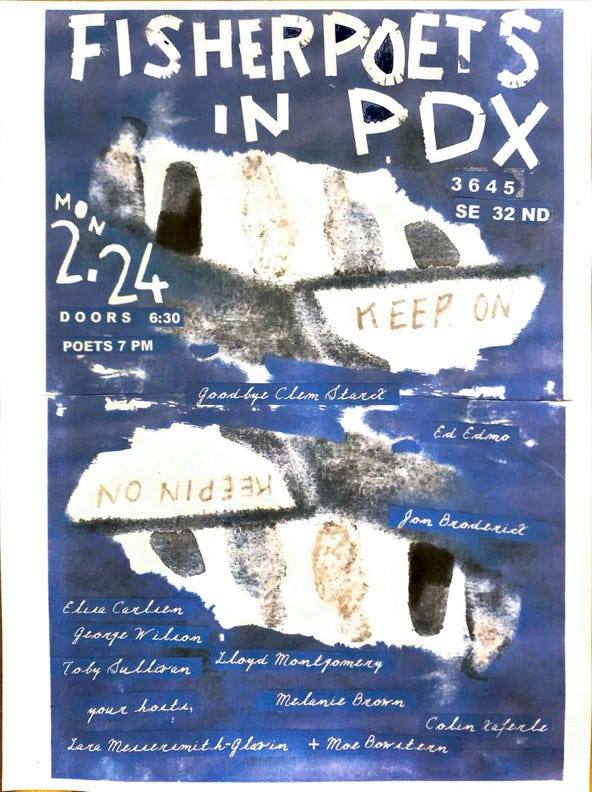 FISHERPOETS
IN PDX
3645
SE 32ND
MON
2.24
DOORS 6:30
POETS 7 PM
KEEP ON
Goodbye Clem Starck
Ed Edmo
KEEPIN ON
Jon Broderick
Elisa Carlsen
George Wilson
Toby Sullivan
Lloyd Montgomery
your hosts,
Melanie Brown
Colin Kaferle
Lara Messersmith-Glavin + Moe Bowstern